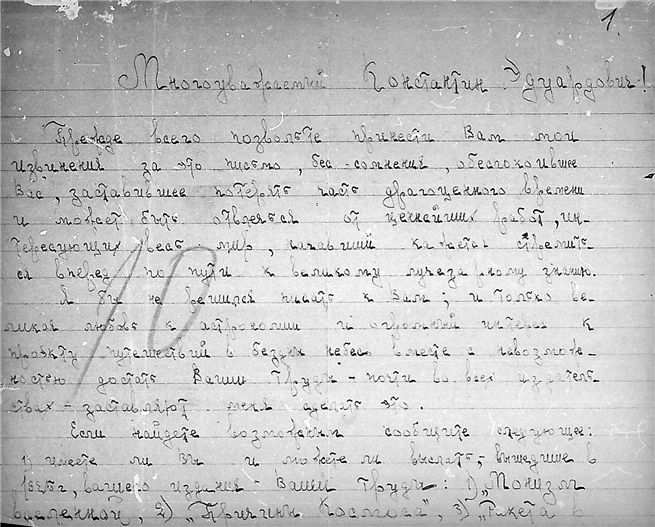 1.
Многоуважаемый Константин Эдуардович!
Прежде всего позвольте принести Вам мои
извинения за это письмо, без-сомнения, обеспокоившее
Вас, заставившее потерять часть драгоценного времени
и может быть отвлечься от ценнейших работ, ин-
тересующих весь мир, каждый стремить-
ся вперед по пути к великому лучезарному знанию.
10
Я бы не решился писать к Вам; и только ве-
ликая любовь к астрономии и огромный интерес к
проэкту путешествий в бездны небес вместе с невозмож-
ностью достать Ваши труды - почти во всех издатель-
ствах - заставляют меня сделать это.
Если найдете возможным сообщите следующее:
1) имеете ли Вы и можете ли выслать, вышедшие в
1925г, вашего издания - Вашей труды: 1) „Монизм
вселенной", 2) „Причина Космоса", 3) „Ракета в